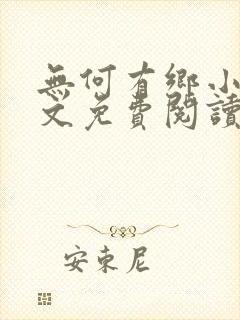 無何有鄉小
文免費閱讀
安東尼